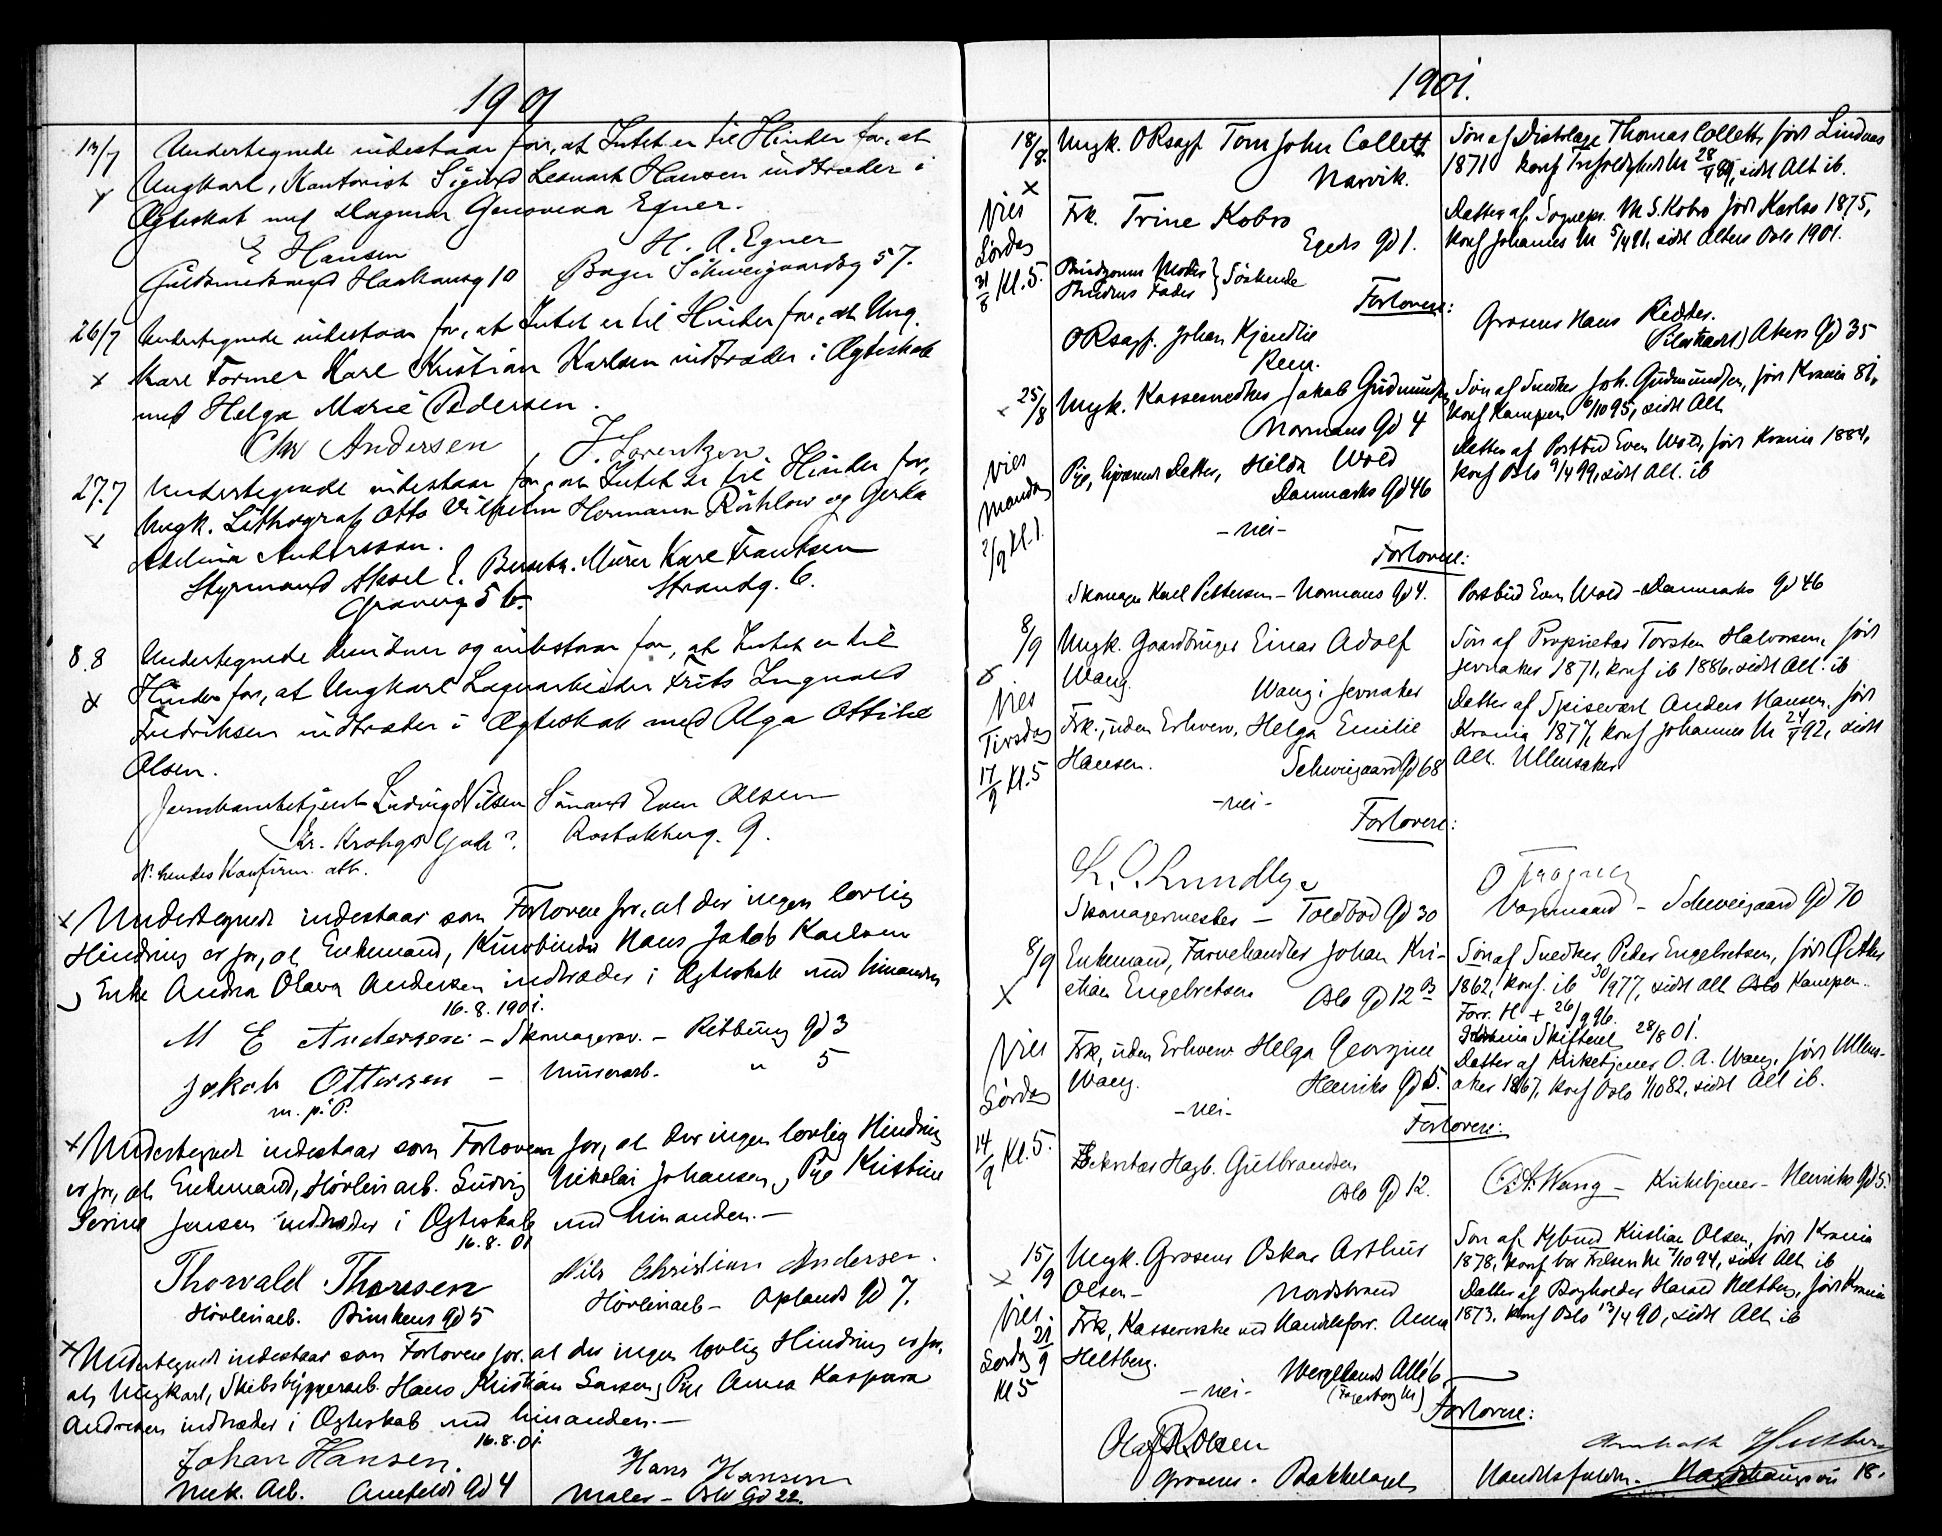 1901
13/7 Undertegnede indestaar for, at Intet er til Hinder for, at
x Ungkarl, Kontorist Sigurd Leonart Hansen indtræder i
Ægteskab med Dagmar Genoveva Egner.
E Hansen H. A. Egner
Guldsmedsvend Hauksnesg 10 Bager Schweigaardsg 57.
26/7 Undertegnede indestaar for, at Intet er til Hinder for, at Ung.
x karl Former Karl Kristian Karlsen indtræder i Ægteskab
med Helga Marie Pedersen.
Chr Andersen J. Lorentzen
27.7 Undertegnede indestaar for, at Intet er til Hinder for,
x Ungk. Lithograf Otto Vilhelm Hermann Röhlow og Gerda
Adelina Andersson.
Styrmand Aksel E. Murer Karl Frantsen
5 b. Strandg. 6.
8.8 Undertegnede kjender og indestaar for, at Intet er til
x Hinder for, at Ungkarl Lagerarbeider Frits Ingvald
Fredriksen indtræder i Ægteskab med Olga Ottilie
Olsen.
Jernbanebetjent Ludvig Nilsen Sömand Even Olsen
Chr. Krohgs Gade ?. Rostokkberg. 9.
N: hendes Konfirm. att.
x Undertegnede indestaar som Forlovere for, at der ingen lovlig
Hindring er for, at Enkemand, Kurvbinder Hans Jakob Karlsen
, Enke Andra Olava Andersen indtræder i Ægteskab med hinanden
16.8.1901.
M E Andersen – Skomagersv. – Rubbing gd 3
Jakob Ottersen – Murerarb. " 5
m. p. P.
x Undertegnede indestaar som Forlovere for, at der ingen lovlig Hindring
er for, at Enkemand, Hövleriarb. Ludvig Nikolai Johansen, Pige Kristine
Serine Jensen indtræder i Ægteskab med hinanden. –
16.8.01
Thorvald Thoresen Nils Christian Andersen.
Hövleriarb. Munkens gd 5 Hövleriarb – Oplands gd 7.
x Undertegnede indestaar som Forlovere for. at der ingen lovlig Hindring er for,
at Ungkarl, Skibsbyggerarb. Hans Kristian Larsen, Pige Anna Kaspara
Andresen indtræder i Ægteskab med hinanden. –
16.8.01.
Johan Hansen. Hans Hansen
Mek. Arb. Aunfelds gd 4 Maler – Oslo gd 22.
1901.
18/8. Ungk. ORsagf. Tom John Collett Sön af Distrlæge Thomas Collett, födt Lindaas
x Narvik. 1871 konf Trefoldigheds M 28/9 87, sidst Alt. ib.
Vies Frk. Trine Kobro Datter af Sognepr. M S. Kobro födt Karlsö 1875,
Lördag Egeds gd 1. konf Johannes M 5/4 91, sidst Alters Oslo 1901.
31/8 Kl. 5. Brudgoms Moder } Söskende
Brudens Fader
Forlovere:
ORsagf. Johan Kjendlie Grosserer Hans Richter.
Rena. (Pilestræde) Akers gd 35
25/8 Ungk. Kassesnedker Jakob Gudmundsen Sön af Snedker Joh. Gudmundsen, födt Krania 81,
Normans gd 4 konf Kampen 6/10 95, sidst Alt
Vies Pige, hjemmev. Datter, Hilda Wold Datter af Postbud Even Wold, födt Krania 1884,
Mandag Danmarks gd 46 konf Oslo 9/4 99, sidst Alt. ib
2/9 Kl. 1. – nei –
Forlovere:
Skomager Karl Pettersen – Normans gd 4. Postbud Even Wold – Danmarks gd 46
8/9 Ungk. Gaardbruger Einar Adolf Sön af Proprietær Torsten Halvorsen, födt
x Wang. Jevnaker 1871, konf ib 1886, sidst Alt. ib
Vies Wang i Jevnaker
Tirsdag Frk., uden Erhverv, Helga Emilie Datter af Spisevært Anders Hansen, födt
17/9 Kl. 5 Hansen. Krania 1877, konf Johannes M 24/4 92, sidst
Schweigaard gd 68 Alt. Ullensaker
– nei –
Forlovere:
L. O. Lundby O Fragner
Skomagermester – Toldbod gd 30 Vognmand – Schweigaard gd 70
8/9 Enkemand, Farvehandler Johan Kri- Sön af Snedker Peder Engebretsen, födt Ø. Aker
x stian Engebretsen Oslo gd 12 B 1862, konf. ib 30/9 77, sidst Alt Kampen.
Forr. H + 26/9 96.
Krania Skifteret 28/8 01.
Vies Frk, uden Erhverv Helga Georgine Datter af Kirketjener O. A. Wang, födt Ullens-
Lördag Wang. Henriks gd 5. aker 1867, konf Oslo 1/10 82, sidst Alt ib.
14/9 Kl. 5. – nei –
Forlovere:
Sekretær Hagb. Gulbrandsen
Oslo gd 12. O. A. Wang – Kirketjener – Henriks gd 5.
15/9 Ungk. Grosserer Oskar Arthur Sön af Kjbmd Kristian Olsen, födt Krania
x Olsen – Nordstrand 1878, konf Vor Frelsers M 7/10 94, sidst Alt ib
Vies. Frk, Kassererske ved Handelsforr. Anna Datter af Bogholder Harald Heltberg, födt Krania
Lördag 21/9 Heltberg. 1873. konf Oslo 13/4 90, sidst Alt ib
Kl 5 Wergelands Allé 6,
– nei – (Fagerborg M)
Forlovere:
Olaf R. Olsen
Grosserer – Bækkelaget Handelsfuldm. 18.